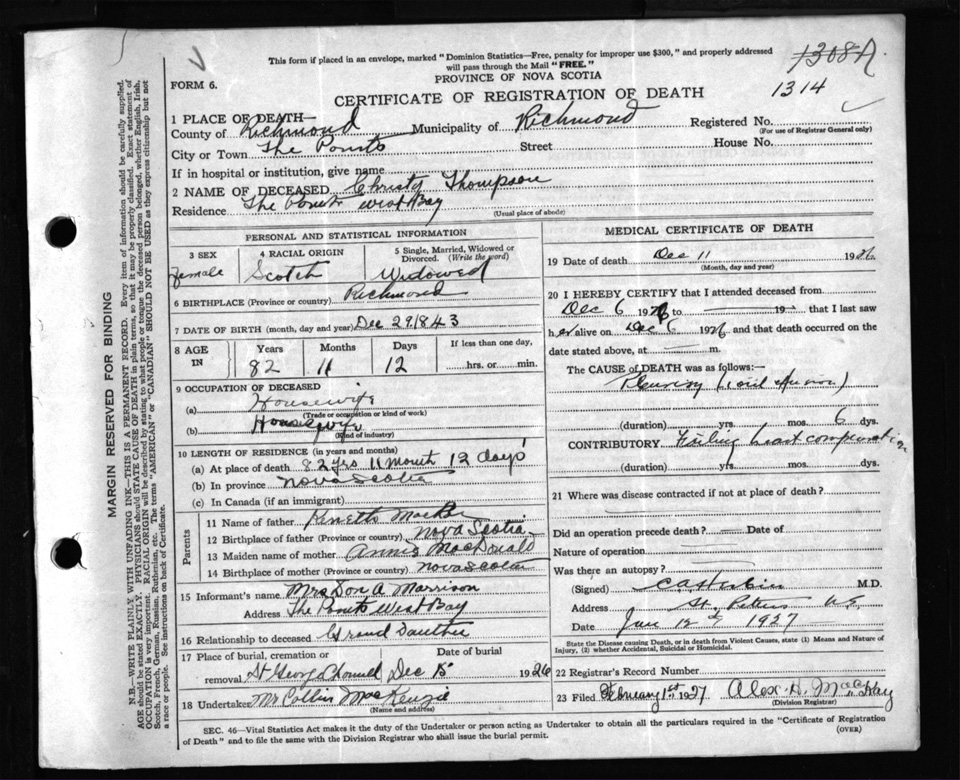 This form if placed in an envelope, marked "Dominion Statistics—Free, penalty for improper use $300," and properly addressed
will pass through the Mail "FREE."
PROVINCE OF NOVA SCOTIA
1308A
FORM 6.
CERTIFICATE OF REGISTRATION OF DEATH
1314
1 PLACE OF DEATH—
County of Richmond Municipality of Richmond Registered No.
(For use of Registrar General only)
City or Town The Points Street House No.
If in hospital or institution, give name
2 NAME OF DECEASED Christy Thompson
Residence The Points West Bay
(Usual place of abode)
PERSONAL AND STATISTICAL INFORMATION
3 SEX 4 RACIAL ORIGIN 5 Single, Married, Widowed or Divorced. (Write the word)
Female Scotch Widowed
6 BIRTHPLACE (Province or country) Richmond
7 DATE OF BIRTH (month, day and year) Dec 29 1843
8 AGE IN Years Months Days If less than one day,
82 11 12 hrs. or min.
9 OCCUPATION OF DECEASED
(a) Housewife
(Trade or occupation or kind of work)
(b) Housewife
(Kind of industry)
10 LENGTH OF RESIDENCE (in years and months)
(a) At place of death 82 yrs 11 mount 12 days
(b) In province Nova Scotia
(c) In Canada (if an immigrant)
Parents
11 Name of father Kenneth
12 Birthplace of father (Province or country) Nova Scotia
13 Maiden name of mother Annie MacDonald
14 Birthplace of mother (Province or country) Nova Scotia
15 Informant's name Mrs Don A Morrison
Address The Points West Bay
16 Relationship to deceased Grand Dauther
17 Place of burial, cremation or removal Date of burial
St Georg Channel Dec 15 1926
18 Undertaker Mr Collin MacKenzie
(Name and address)
MEDICAL CERTIFICATE OF DEATH
19 Date of death Dec 11 1926
(Month, day and year)
20 I HEREBY CERTIFY that I attended deceased from
Dec 6 1926 to 19
that I last saw
her alive on Dec 6 1926, and that death occurred on the
date stated above, at m.
The CAUSE of DEATH was as follows:—
Pleurisy
(duration) yrs. mos. 6 dys.
CONTRIBUTORY Failing heart compensation
(duration) yrs. mos. dys.
21 Where was disease contracted if not at place of death?
Did an operation precede death? Date of
Nature of operation
Was there an autopsy?
(Signed) M.D.
Address St. Peters N.S.
Date Jan 12th 1927
State the Disease causing Death, or in death from Violent Causes, state (1) Means and Nature of
Injury, (2) whether Accidental, Suicidal or Homicidal.
22 Registrar's Record Number
23 Filed February 1st 1927 Alex. H. MacKay
(Division Registrar)
SEC. 46—Vital Statistics Act makes it the duty of the Undertaker or person acting as Undertaker to obtain all the particulars required in the "Certificate of Registration
of Death" and to file the same with the Division Registrar who shall issue the burial permit.
(OVER)
MARGIN RESERVED FOR BINDING
N.B.—WRITE PLAINLY WITH UNFADING INK—THIS IS A PERMANENT RECORD. Every item of information should be carefully supplied.
AGE should be stated EXACTLY. PHYSICIANS should STATE CAUSE OF DEATH in plain terms, so that it may be properly classified. Exact statement of
OCCUPATION is very important. RACIAL ORIGIN will be described by stating to what people or tongue the deceased person belonged, whether English, Irish,
Scotch, French, German, Russian, Ruthenian, etc. The terms "AMERICAN" or "CANADIAN" SHOULD NOT BE USED as they express citizenship but not
a race or people. See instructions on back of Certificate.